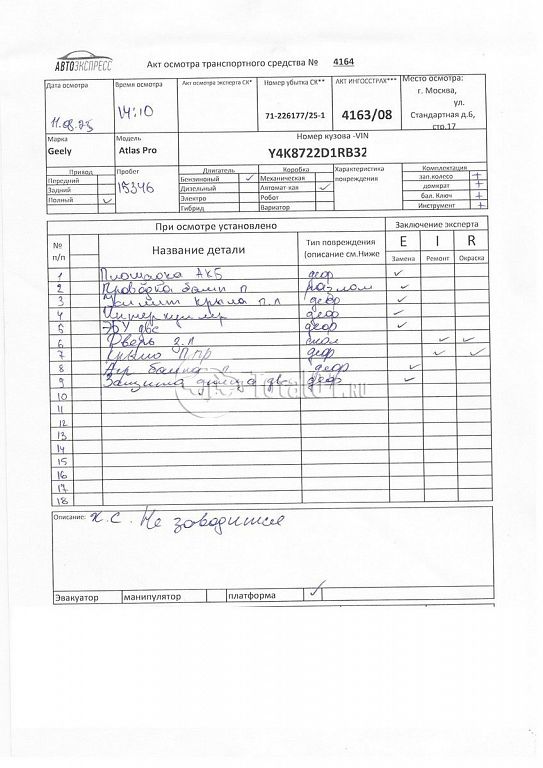 АВТОЭКСПРЕСС
Акт осмотра транспортного средства № 4164
Дата осмотра
11.08.25
Время осмотра
14:10
Акт осмотра эксперта СК*
Номер убытка СК**
71-226177/25-1
АКТ ИНГОССТРАХ***
4163/08
Место осмотра:
г. Москва,
ул.
Стандартная д.6,
стр.17
Марка
Geely
Модель
Atlas Pro
Номер кузова -VIN
Y4K8722D1RB32
Привод
Передний
Задний
Полный ✓
Пробег
Двигатель
Бензиновый ✓
Дизельный
Электро
Гибрид
Коробка
Механическая
Автомат-кая ✓
Робот
Вариатор
Характеристика
повреждения
Комплектация
зап.колесо +
домкрат +
бал. Ключ +
Инструмент +
При осмотре установлено
Заключение эксперта
№
п/п
Название детали
Тип повреждения
(описание см.Ниже
E I R
Замена Ремонт Окраска
1 Площадка АКБ деф ✓
2 Проводка п разлом ✓
3 крыла п.п деф ✓
4 Интеркуллер деф ✓
5 ЭБУ двс деф ✓
6 Дверь скол ✓ ✓
7 Крыло деф ✓ ✓
8 деф ✓
9 Защита деф ✓
10
11
12
13
14
15
16
17
18
Total01.RU
Описание: х.с. Не заводится
Эвакуатор манипулятор платформа ✓